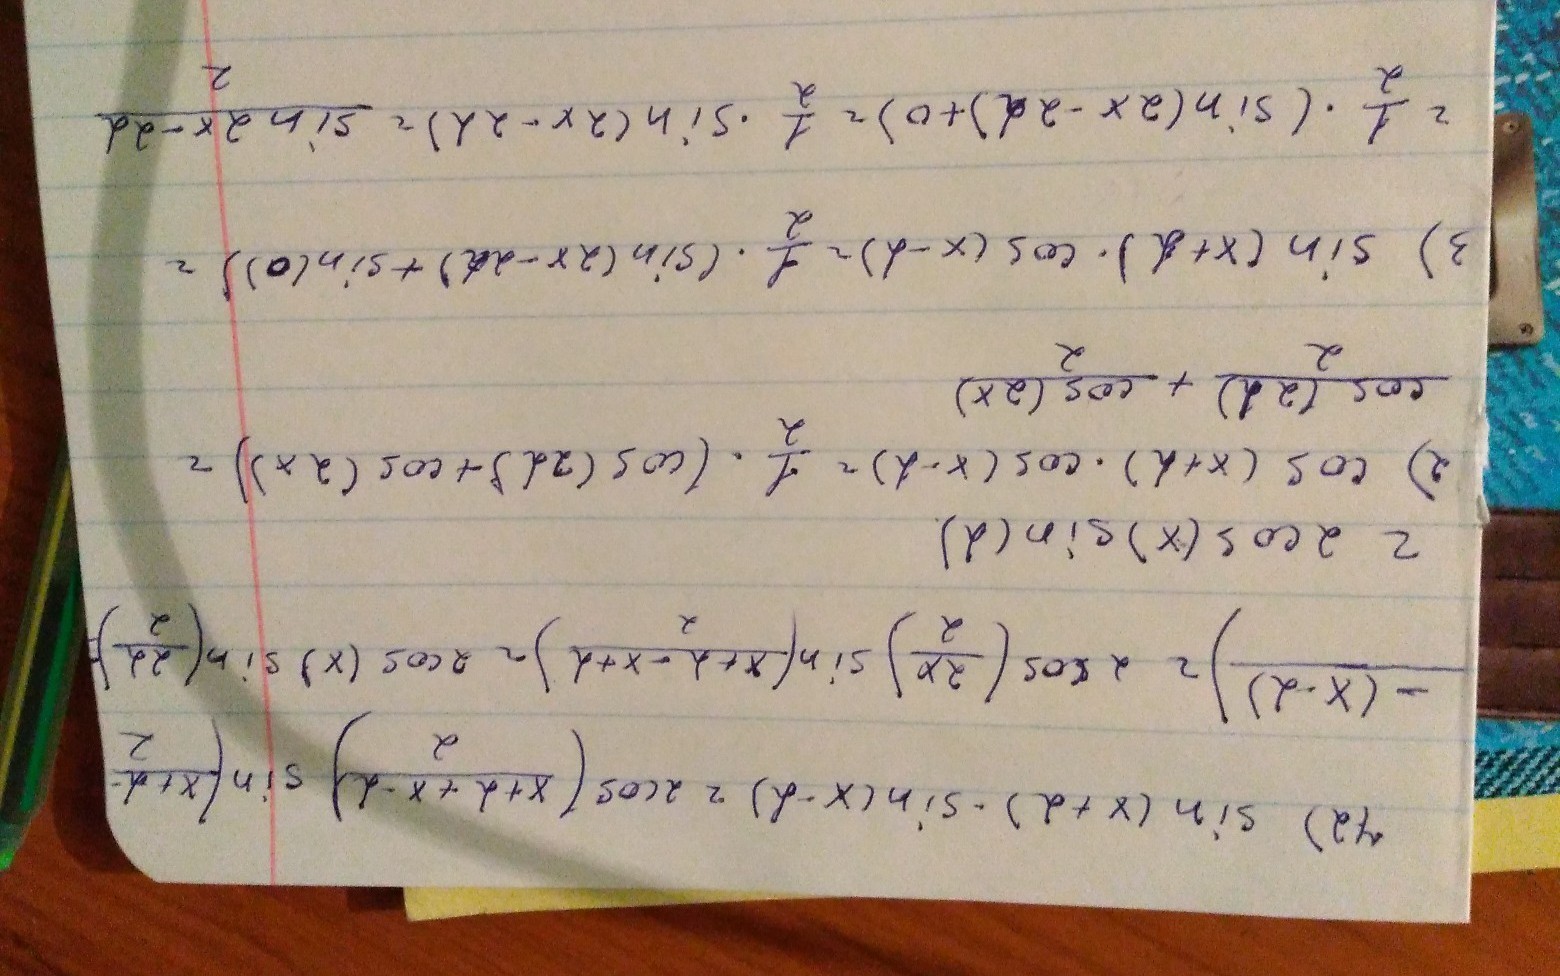 42) sin(x+α)-sin(x-α)=2cos((x+α+x-α)/2) sin((x+α-/2
-(x-α)/)=2cos(2x/2)sin((x+α-x+α)/2)=2cos(x)sin(2α/2)=
=2cos(x)sin(α)
2) cos(x+α)·cos(x-α)=1/2·(cos(2α)+cos(2x))=
cos(2α)/2+cos(2x)/2
3) sin(x+α)·cos(x-α)=1/2·(sin(2x-2α)+sin(0))=
=1/2·(sin(2x-2α)+0)=1/2·sin(2x-2α)=sin2x-2α/2